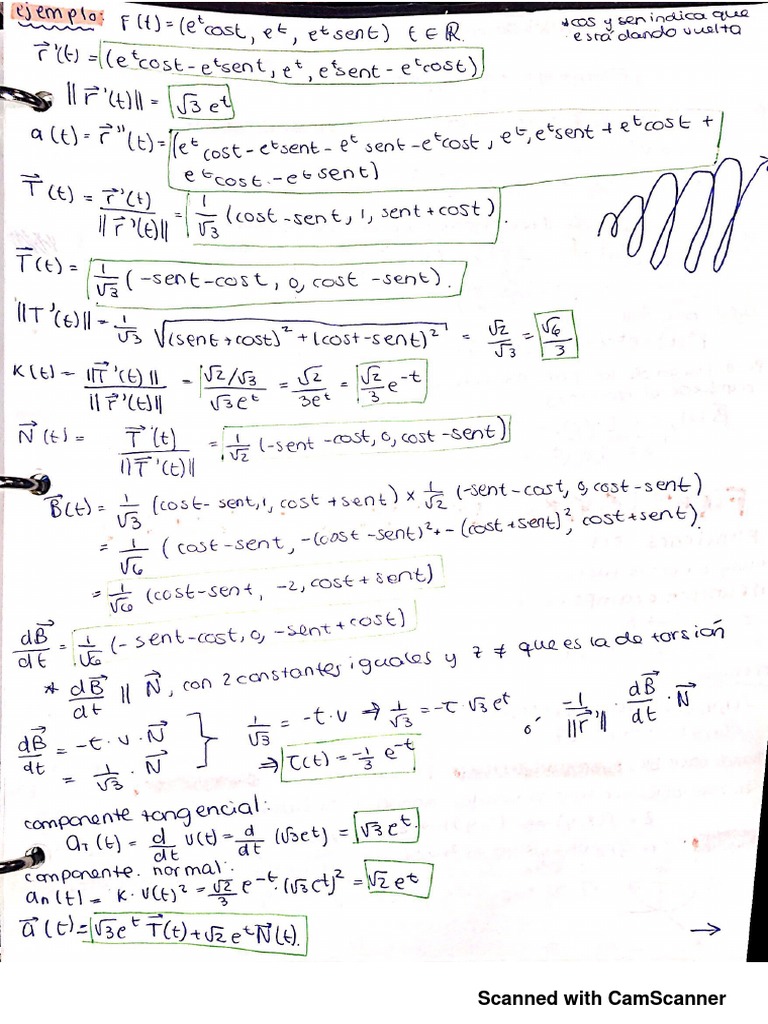 ejemplo: r⃗(t) = (eᵗcost, eᵗ, eᵗsent) t ∈ ℝ.
*cos y sen indica que
está dando vuelta
r⃗'(t) = (eᵗcost - eᵗsent, eᵗ, eᵗsent - eᵗcost)
||r⃗'(t)|| = √3 eᵗ
a(t) = r⃗''(t) = (eᵗcost - eᵗsent - eᵗsent - eᵗcost, eᵗ, eᵗsent + eᵗcost +
eᵗcost - eᵗsent)
T⃗(t) = r⃗'(t)/||r⃗'(t)|| = 1/√3 (cost - sent, 1, sent + cost).
T⃗(t) = 1/√3 (-sent - cost, 0, cost - sent).
||T'(t)|| = 1/√3 √((sent + cost)² + (cost - sent)²) = √2/√3 = √6/3
K(t) = ||T⃗'(t)||/||r⃗'(t)|| = (√2/√3)/(√3eᵗ) = √2/3eᵗ = √2/3 e⁻ᵗ
N⃗(t) = T⃗'(t)/||T⃗'(t)|| = 1/√2 (-sent - cost, 0, cost - sent)
B⃗(t) = 1/√3 (cost - sent, 1, cost + sent) × 1/√2 (-sent - cost, 0, cost - sent)
= 1/√6 (cost - sent, -(cost - sent)² + - (cost + sent)², cost + sent).
= 1/√6 (cost - sent, -2, cost + sent)
dB⃗/dt = 1/√6 (-sent - cost, 0, -sent + cost)
* dB⃗/dt || N⃗, con 2 constantes iguales y 7 ≠ que es la de torsión
dB⃗/dt = -τ · v · N⃗ } 1/√3 = -τ · v ⇒ 1/√3 = -τ · √3 eᵗ ó -1/||r⃗'|| · dB⃗/dt · N⃗
= 1/√3 · N⃗ ⇒ τ(t) = -1/3 e⁻ᵗ
componente tangencial:
aT(t) = d/dt v(t) = d/dt (√3eᵗ) = √3eᵗ.
componente normal:
an(t) = K · v(t)² = √2/3 e⁻ᵗ · (√3eᵗ)² = √2 eᵗ
a⃗(t) = √3eᵗ T⃗(t) + √2 eᵗ N⃗(t). →
Scanned with CamScanner